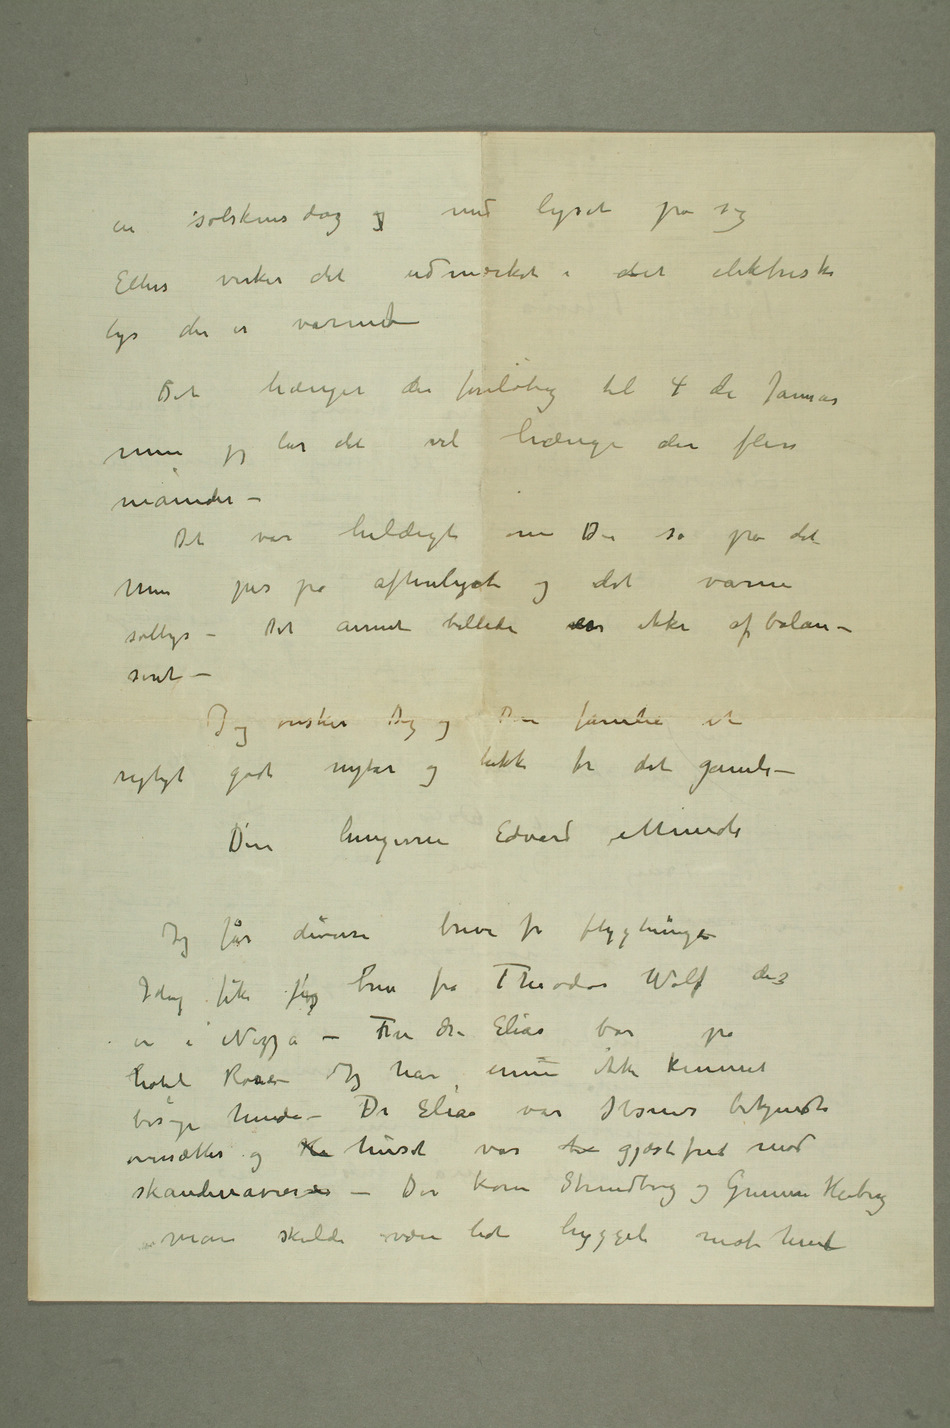 en solskinsdag og med lyset på sig
Ellers virker det udmærket i det elektriske
lys der er varmt
Det hænger der foreløbig til 4 de Januar
men jeg lar det vel hænge der flere
måneder –
Det var heldigt om Du så på det
men på aftenlyset og det varme
sollys – Det annet billede er ikke afbalan-
seret –
Jeg ønsker Dig og Din familie et
rigtigt godt nytår og takk for det gamle –
Din hengivne Edvard Munch
Jeg får diverse breve fra flygtninge
Idag fik jeg brev fra Theodor Wolf der
er i Nizza – Fru dr Elias bor på
hotel Rosa – Jeg har ennu ikke kunnet
besøge hende – Dr Elias var Ibsens bekjendte
oversætter og huset var gjæstfrit mod
skandinaver – Der kom Strindberg og Gunnar Heiberg
man skulde være lidt hyggeli mot hende